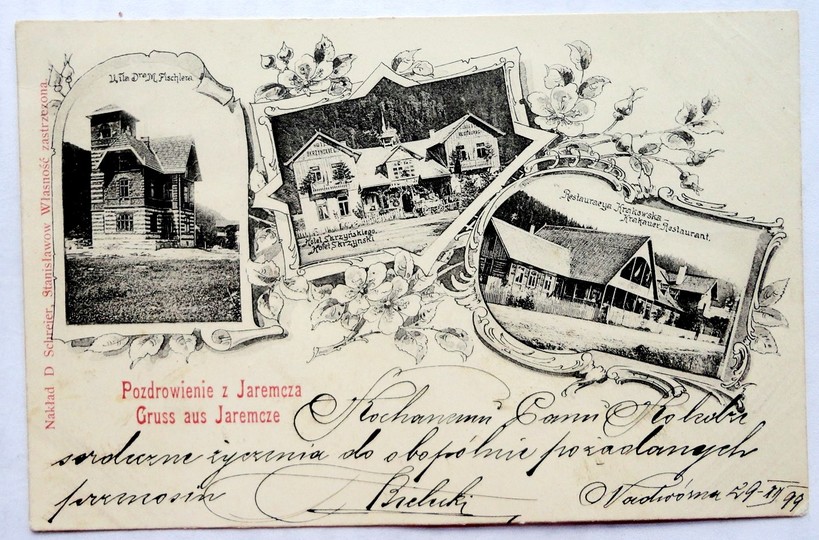 Willa Dra M. Fischlera
Hotel Skrzyńskiego.
Hotel Skrzyński
Restauracya Krakowska –
Krakauer Restaurant.
Nakład D Schreier, Stanisławów Własność zastrzeżona.
Pozdrowienie z Jaremcza
Gruss aus Jaremcze
Kochanemu Panu
serdeczne życzenia do obopólnie pożądanych
przenosin Bielecki
Nadwórna 29 99